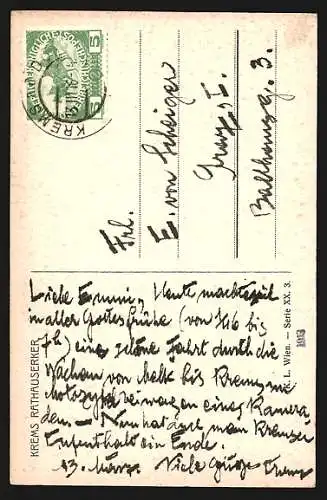 5 5
KREMS
Frl.
E. von Scheiger
Graz, I.
Balthauserg. 3.
KREMS RATHAUSERKER
L. Wien. – Serie XX. 3.
Liebe Emmi, Heute machte ich
in aller Gottesfrühe (von ½6 bis
7h) eine schöne Fahrt durch die
Wachau von Melk bis Krems im
Motorzyklbeiwagen eines Kamera-
den. – Nun hat der Kremser
Aufenthalt ein Ende.
13. März Viele Grüße